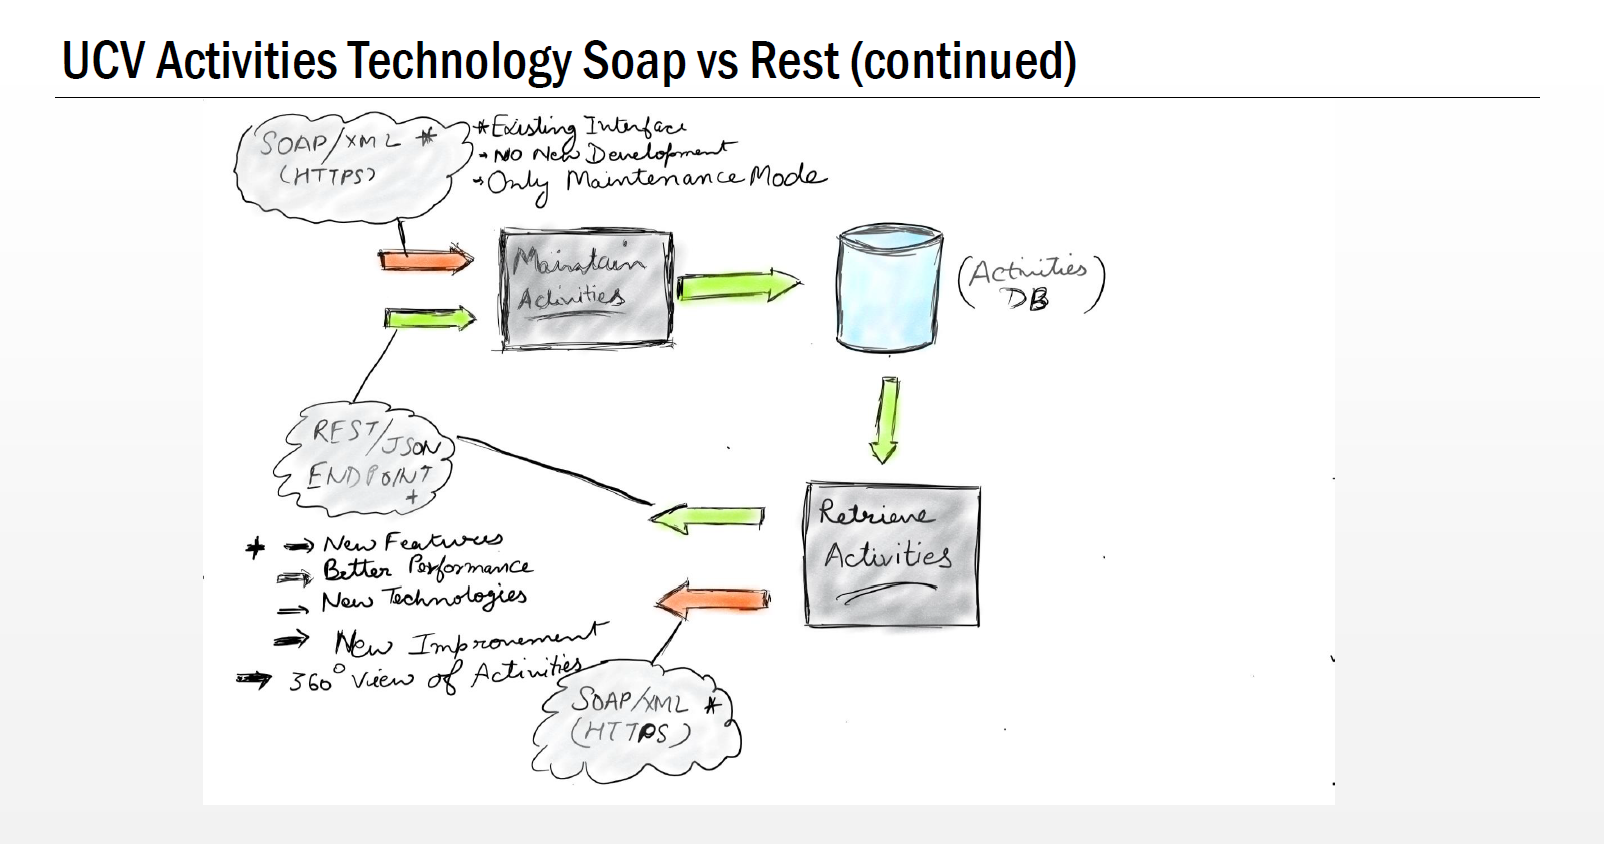 UCV Activities Technology Soap vs Rest (continued)
SOAP/XML *
(HTTPS)
* Existing Interface
→ No New Development
→ Only Maintenance Mode
Maintain
Activities
(Activities
DB)
REST/JSON
ENDPOINT
+
Retrieve
Activities
+ → New Features
→ Better Performance
→ New Technologies
→ New Improvement
→ 360° View of Activities
SOAP/XML *
(HTTPS)